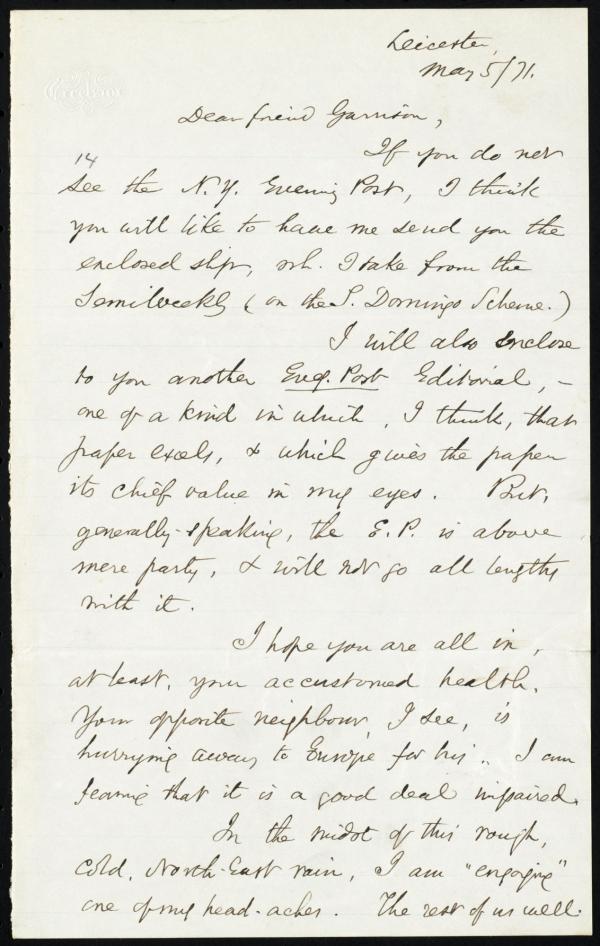 Excelsior
Leicester,
May 5/71.
Dear friend Garrison,
14
If you do not
see the N. Y. Evening Post, I think
you will like to have me send you the
enclosed slip, wh. I take from the
Semiweekly (on the S. Domingo Scheme.)
I will also enclose
to you another Eveg. Post Editorial, –
one of a kind in which, I think, that
paper excels, & which gives the paper
its chief value in my eyes. But,
generally-speaking, the E. P. is above
mere party, & will not go all lengths
with it.
I hope you are all in,
at least, your accustomed health.
Your opposite neighbour, I see, is
hurrying away to Europe for his. I am
fearing that it is a good deal impaired.
In the midst of this rough,
cold, North-East rain, I am "engaging"
one of my head-aches. The rest of us well.